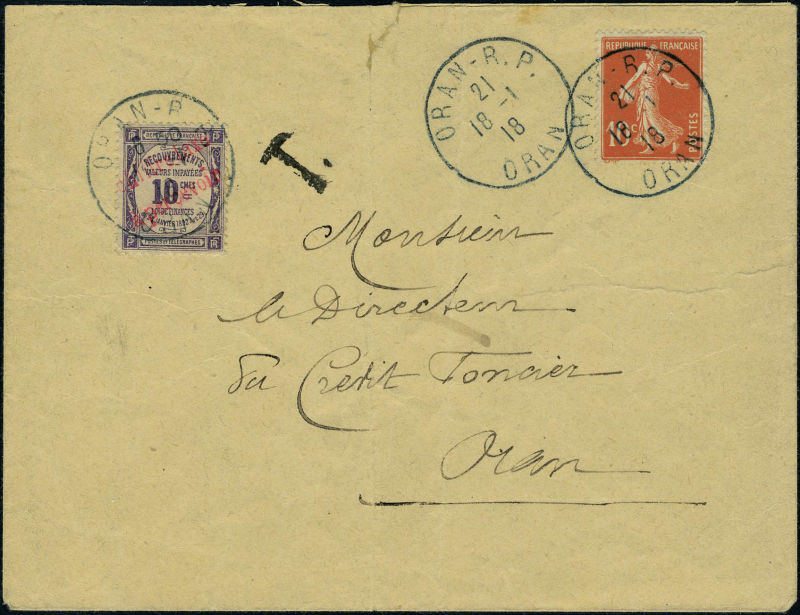 ORAN-R.P.
21
18 -1
18
ORAN
REPUBLIQUE FRANÇAISE
10c
POSTES
ORAN-R.P.
21
18 1
18
ORAN
ORAN-R
REPUBLIQUE FRANÇAISE
RECOUVREMENTS
VALEURS IMPAYÉES
10 CMES
POSTES ET TÉLÉGRAPHES
T.
Monsieur
le Directeur
du Crédit Foncier
Oran